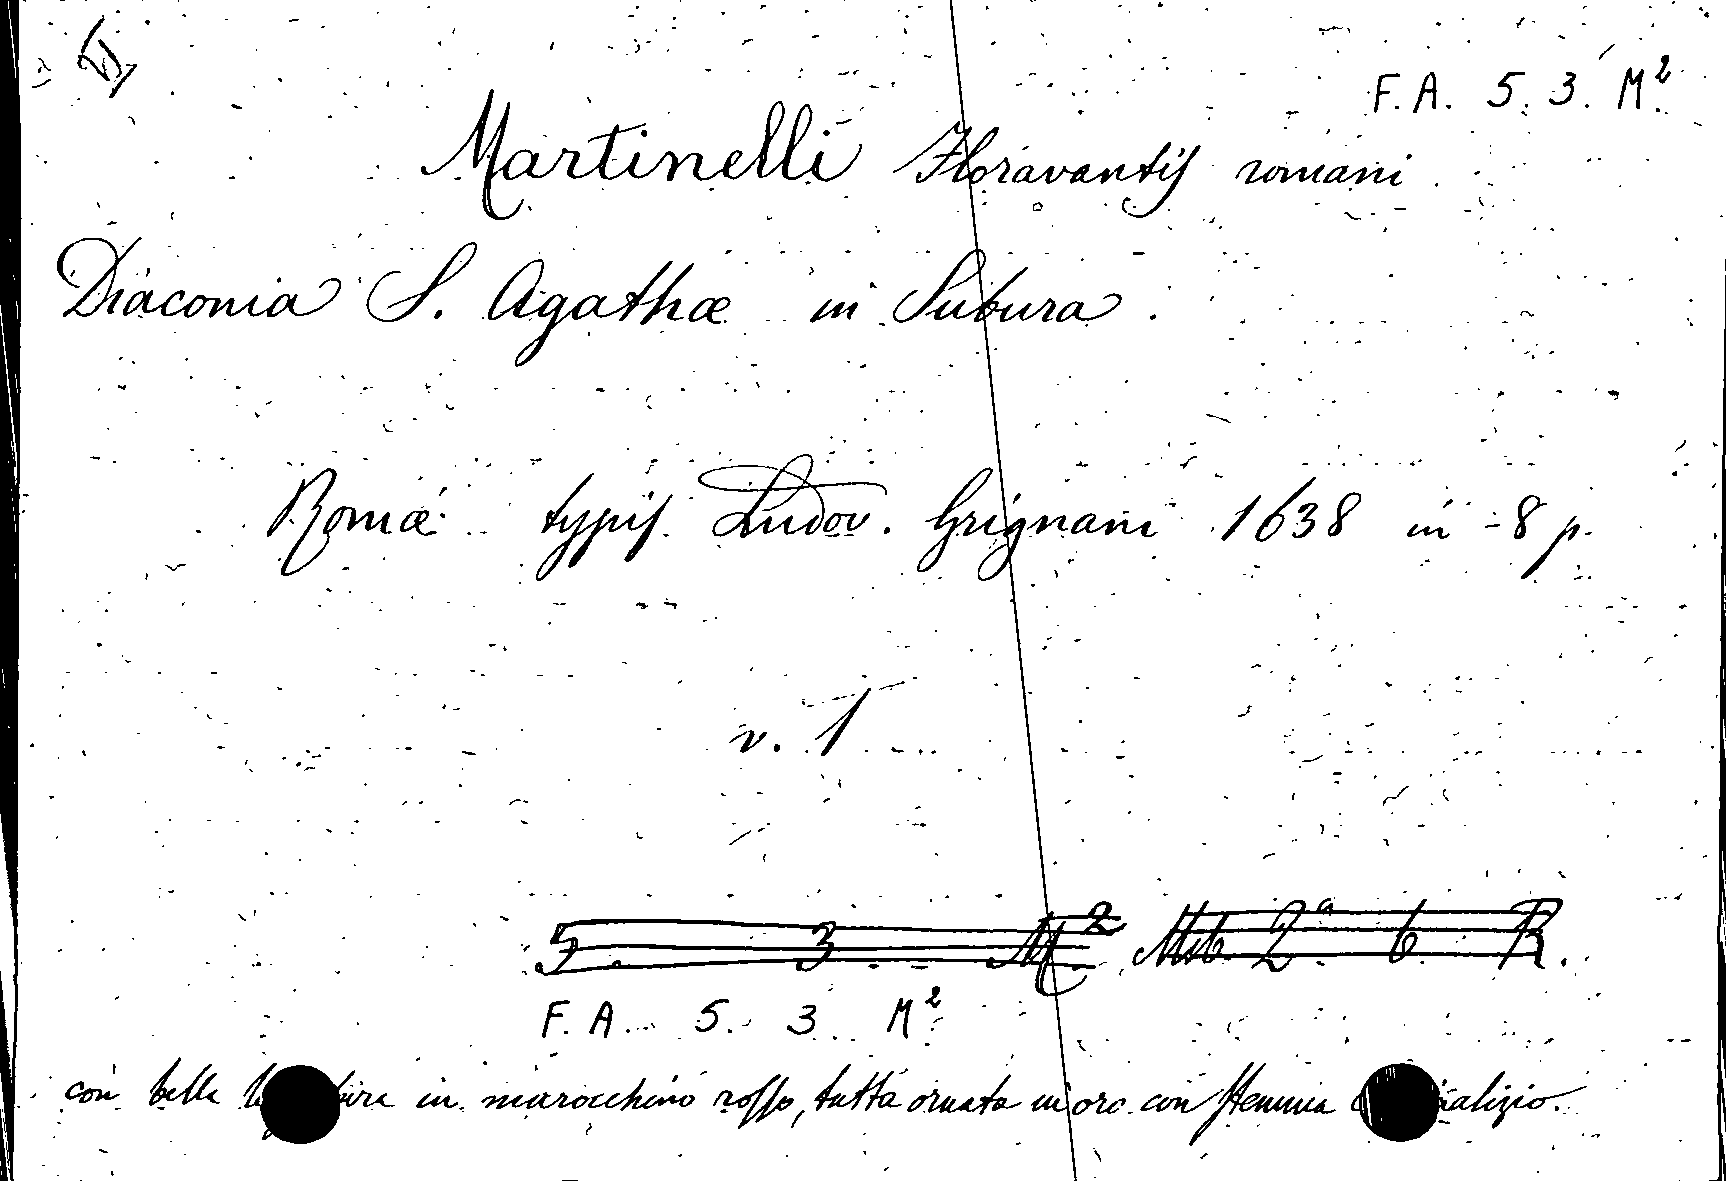 F. A. 5. 3. M²
Martinelli Floravantis romani
Diaconia S. Agathæ in Subura.
Romæ typis. Ludov. Grignani 1638 in-8 p.
v. 1
5. 3 M² Misc. 2ª. 6 R.
F. A. 5. 3 M²
con bella in marocchino rosso, tutta ornata in oro con stemma